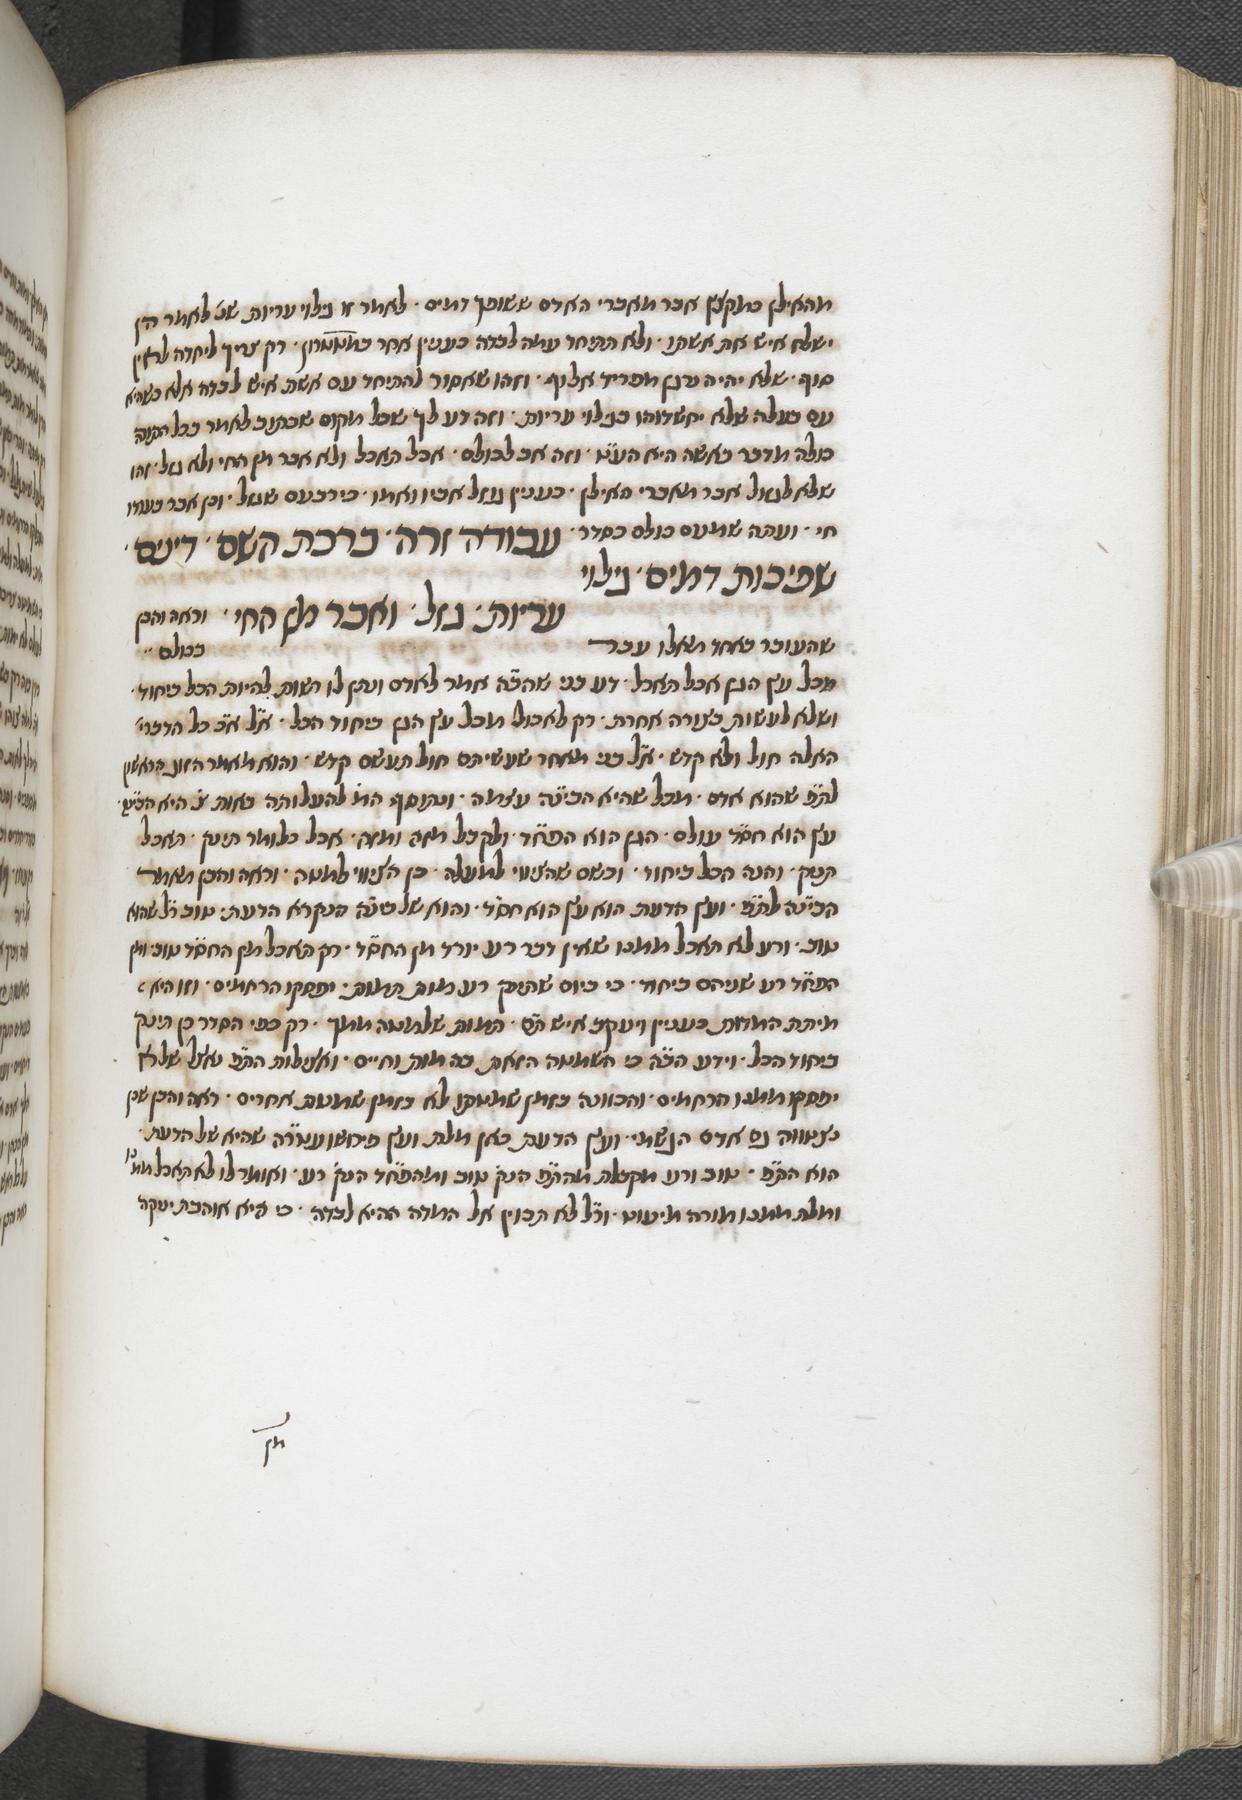 מהאילן כמקצץ אבר מאברי האדם ששופך דמים · לאמר זו גילוי עריות שנ׳ לאמר הן
ישלח איש את אשתו · ולא תתיחד עמה לבדה כענין אחר במטטרון · רק צריך ליחדה לאין
סוף · שלא יהיה נרגן מפריד אלוף · וזהו שאסור להתיחד עם אשת איש לבדה אלא כשהיא
עם בעלה שלא יחשדוהו בגילוי עריות · וזה דע לך שכל מקום שכתוב לאמר בכל התורה
כולה מדבר באשה היא · וזה אב לכולם · אכל תאכל ולא אבר מן החי ולא גזל · זהו
שלא לגזול אבר מאברי האילן · כענין גוזל אביו ואמו · כירבעם שגזל · וכן אבר בעודו
חי · ועתה שמעם כולם כסדר · עבודה זרה · ברכת השם · דינים ·
שפיכות דמים · גילוי
עריות · גזל · ואבר מן החי · וראה והבן
שהעובר באחד מאלו עבר בכולם
מכל עץ הגן אכל תאכל · דע כי שהב״ה אמר לאדם ונתן לו רשות להיות הכל ביחוד ·
ושלא לעשות בצורה אחרת · רק לאכול מכל עץ הגן ביחוד הכל · א״ל א״כ כל הדברי׳
האלה חול ולא קדש · א״ל כי מאחר שעשיתם חול תעשם קדש · והוא מאמר הזוג הראשון
לת״ת שהוא אדם · מכל שהיא הבינ״ה עצמה · ונתוסף המ׳ להעלותה באות
עץ הוא חס״ד עולם · הגן הוא הפח״ד · ולקבל מזה ומזה · אכל כלומר תינק · תאכל
תניק · והנה הכל ביחוד · וכשם שהציווי למעלה · כן הציווי למטה · וראה והבן מאמר
הבינ״ה לת״ת · ועץ הדעת הוא עץ הוא חס״ד · והוא של בינ״ה הנקרא הדעת · טוב ר״ל שהוא
טוב · ורע לא תאכל ממנו שאין דבר רע יורד מן החס״ד · רק תאכל מן החס״ד טוב ומן
הפח״ד רע שניהם ביחוד · כי ביום שתינק רע מות תמות · יפסקו הרחמים · וזו היא
מיתת המדות כענין ויעקב איש תם · תמות שלמטה ממך · רק כפי הסדר כן תינק
ביחוד הכל · וידע הב״ה כי השמטה הזאת בה מות וחיים · ואצילות הת״ת אצל שלא
יפסקו ממנו הרחמים · והכוונה בזמן שמטתו לא בזמן שמטות אחרים · ראה והבן שכן
נצטווה גם אדם הגשמי · ועץ הדעת כאן מלת ועץ פירושו עטר״ה שהיא של הדעת ·
הוא הת״ת · טוב ורע מקבלת מהת״ת הנק׳ טוב ומהפח״ד הנק׳ רע · ואומר לו לא תאכל ממנו
ומלת ממנו מורה מיעוט · ור״ל לא תכוין אל המדה ההיא לבדה · כי היא אוהבת יעקב
מן